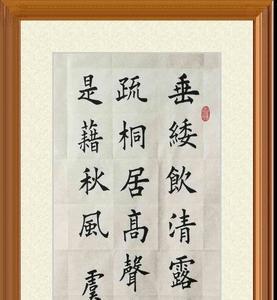 垂緌飲清露
疏桐居高聲
是藉秋風
虞